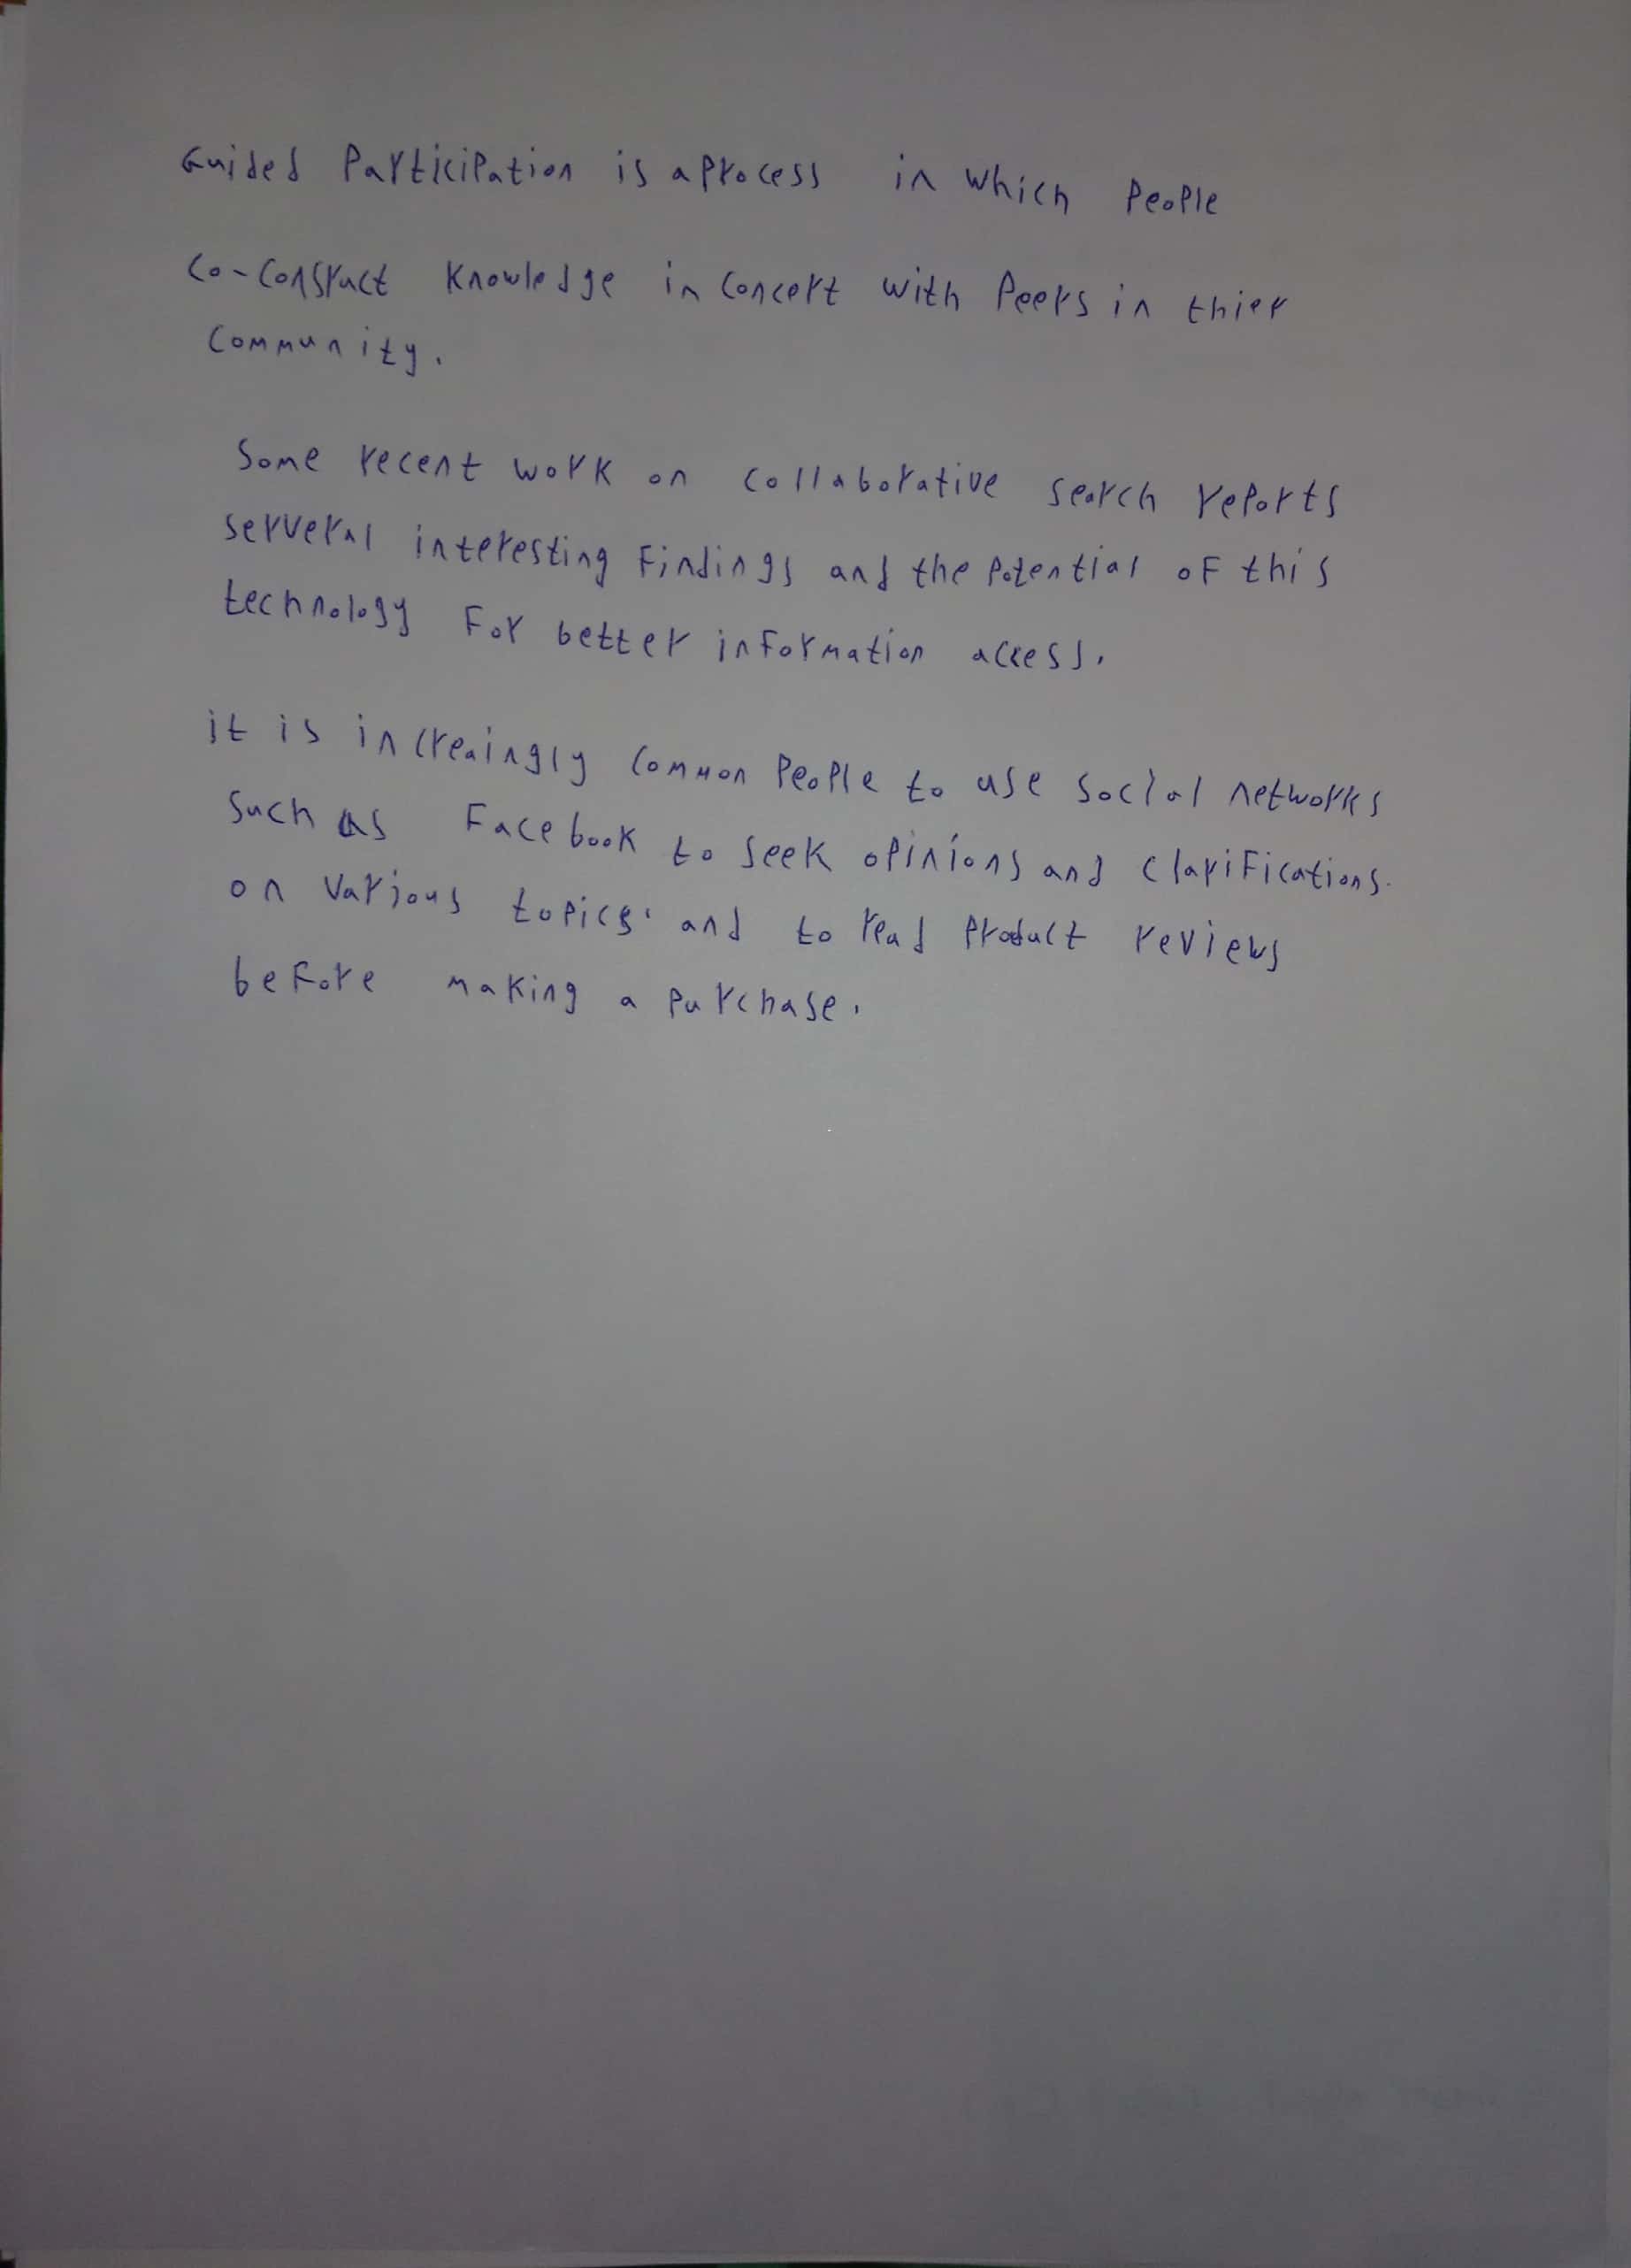 Guided Participation is a process in which People
Co-Constract Knowledge in concert with Peers in thier
Community.
Some recent work on collaborative search reports
serveral interesting Findings and the Potential of this
technology For better information access.
it is increaingly Common People to use social networks
such as Facebook to seek opinions and clarifications.
on various topics. and to read Product reviews
before making a purchase.